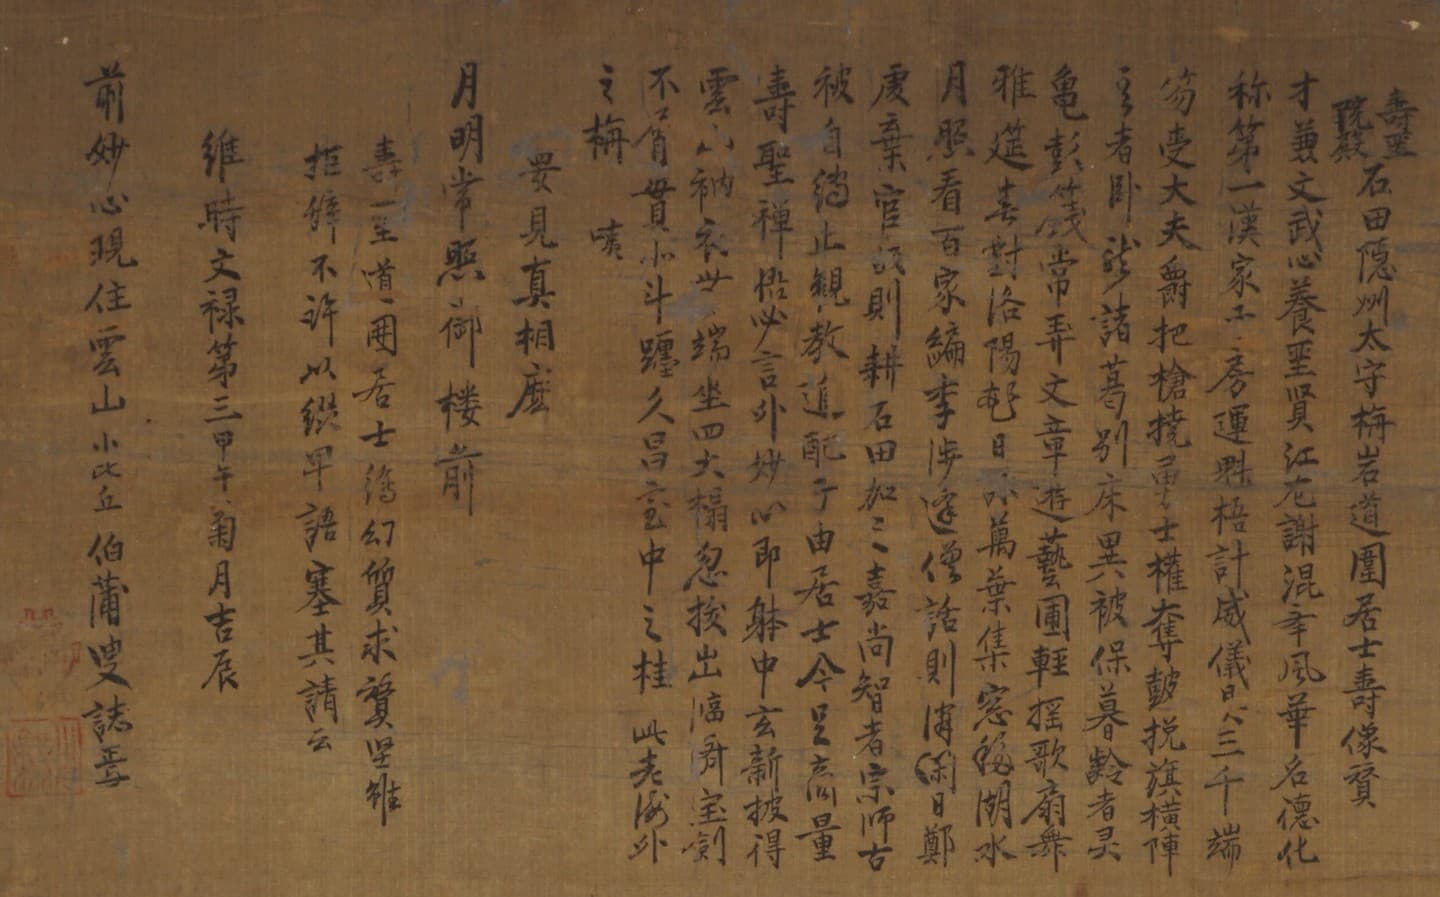 壽聖
院殿
石田隠州太守梅岩道圍居士壽像賛
才兼文武心養聖賢江左謝混年風華名德化
称第一漢家子房運魁梧計威儀三千端
笏受大夫爵把槍撓勇士權奪鼓挩旗橫陣
者臥龍諸葛別床異被保暮齡者灵
亀彭箋常弄文章遊藝圃輕揺歌扇舞
雅筵春對洛陽花日吟萬葉集窓移湖水
月照看百家編李渉逢僧話則消閑日鄭
虔棄官則耕石田加之嘉尚智者宗師古
被自繞止観教追配子由居士今足高量
壽聖禅 必言外妙心即躰中玄新披得
雲衲衣 端坐四大榻忽拔出 宝劍
不 貫 斗躔久昌 室中之桂 此老 外
之梅 咦
要見真相麼
月明常照御楼前
壽聖道圍居士 幻質求賛 雖
拒辞不許以綴卑語塞其請云
維時文禄第三甲午菊月吉辰
前妙心現住雲山小比丘伯蒲叟誌焉